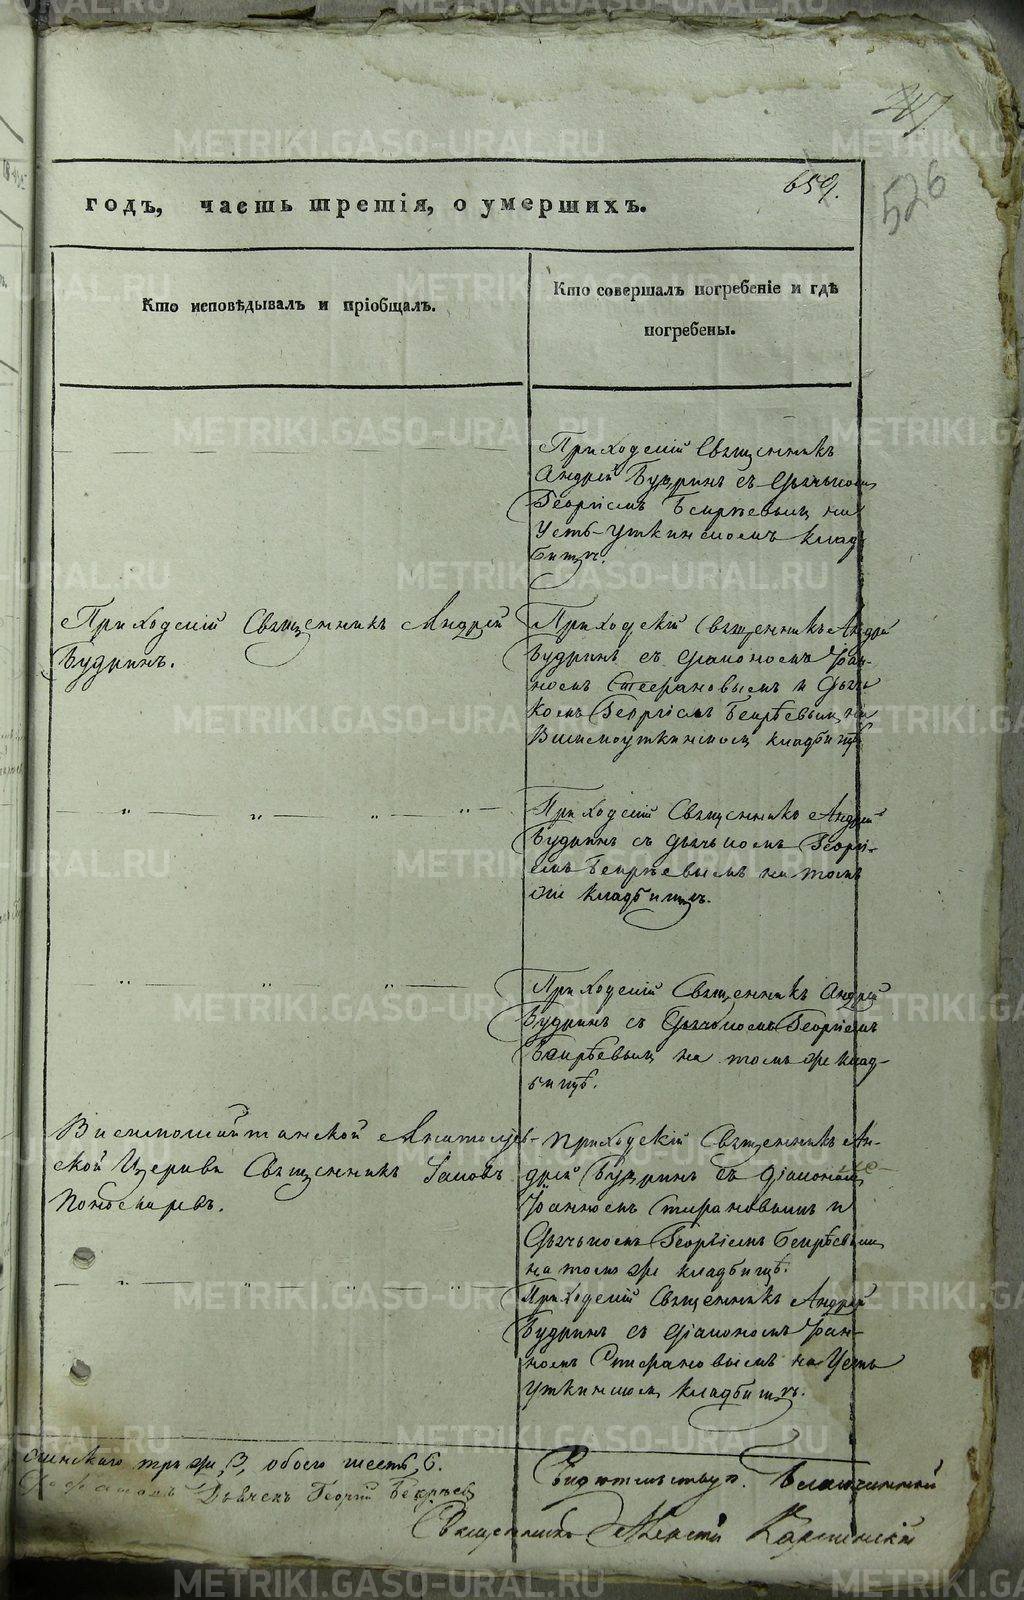 659.
526
годъ, часть третія, о умершихъ.
Кто исповѣдывалъ и пріобщалъ.
Кто совершалъ погребеніе и гдѣ
погребены.
Приходскій Священникъ
Андрей Будринъ съ Дьячькомъ
Георгіемъ Бекрѣевымъ на
Усть-Уткинскомъ клад-
бищѣ.
Приходскій Священникъ Андрей
Будринъ.
Приходскій Священникъ Андрей
Будринъ съ Діакономъ Іоан-
номъ Стефановымъ и Дьячь
комъ Георгіемъ Бекрѣевымъ на
Висимоуткинскомъ кладбищѣ
Приходскій Священникъ Андрей
Будринъ съ Дьячькомъ Георгі-
емъ Бекрѣевымъ на томъ
же кладбищѣ.
Приходскій Священникъ Андрей
Будринъ съ Дьячькомъ Георгіемъ
Бекрѣевымъ на томъ же клад-
бищѣ.
Висимошайтанской Анатоліев-
ской Церкви Священникъ Іаковъ
Приходскій Священникъ Ан-
дрей Будринъ съ Діакономъ
Іоанномъ Стефановымъ и
Дьячькомъ Георгіемъ Бекрѣевымъ
на томъ же кладбищѣ.
Приходскій Священникъ Андрей
Будринъ съ Діакономъ Іоан-
номъ Стефановымъ на Усть
Уткинскомъ кладбищѣ.
женскаго три же, 3, обоего шесть, 6.
Дьячекъ Георгій Бекрѣевъ
Свидѣтельствую. Благочинный
Священникъ
METRIKI.GASO-URAL.RU